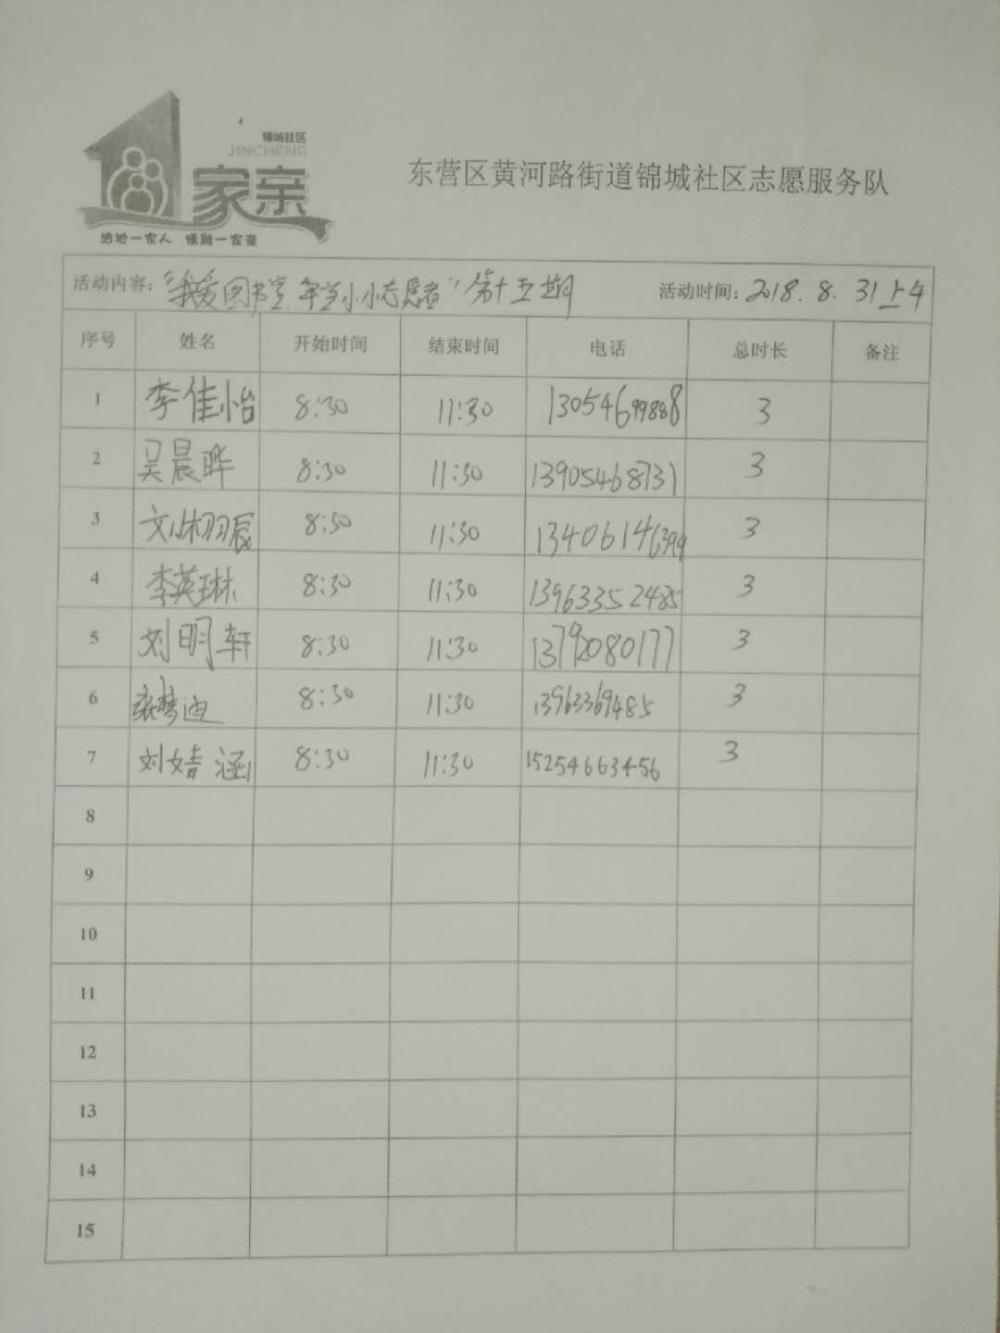 锦城社区
JINCHENG
家亲
东营区黄河路街道锦城社区志愿服务队
活动内容:“我爱图书室 争当小小志愿者”第十五期 活动时间:2018.8.31上午
序号 姓名 开始时间 结束时间 电话 总时长 备注
1 李佳怡 8:30 11:30 13054699888 3
2 吴晨晔 8:30 11:30 13905468731 3
3 8:30 11:30 13406146399 3
4 李英琳 8:30 11:30 13963352485 3
5 刘明轩 8:30 11:30 13792080177 3
6 张梦迪 8:30 11:30 13963369485 3
7 刘婧涵 8:30 11:30 15254663456 3
8
9
10
11
12
13
14
15